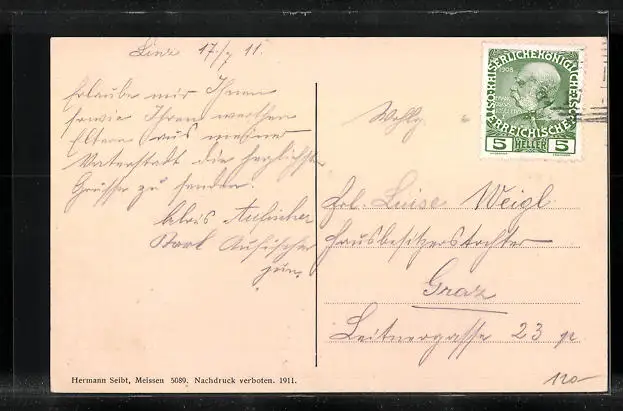 Linz 17./7 11.
Erlaube mir Ihnen
sowie Ihren werthen
Eltern aus meiner
Vaterstadt die herzlichsten
Grüsse zu senden.
Alois Aufischer
Karl Aufischer
jun.
Wohlg.
Frl. Luise Weigl
Hausbesitzerstochter
Graz
Leitnergasse 23
KAISERLICHE KÖNIGLICHE
ÖSTERREICHISCHE
1908
5 HELLER 5
Hermann Seibt, Meissen 5089. Nachdruck verboten. 1911.
120